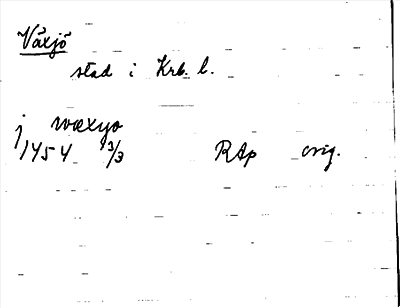 Växjö
stad i Krb. l.
j wæxyo
1454 3/3 RAp orig.